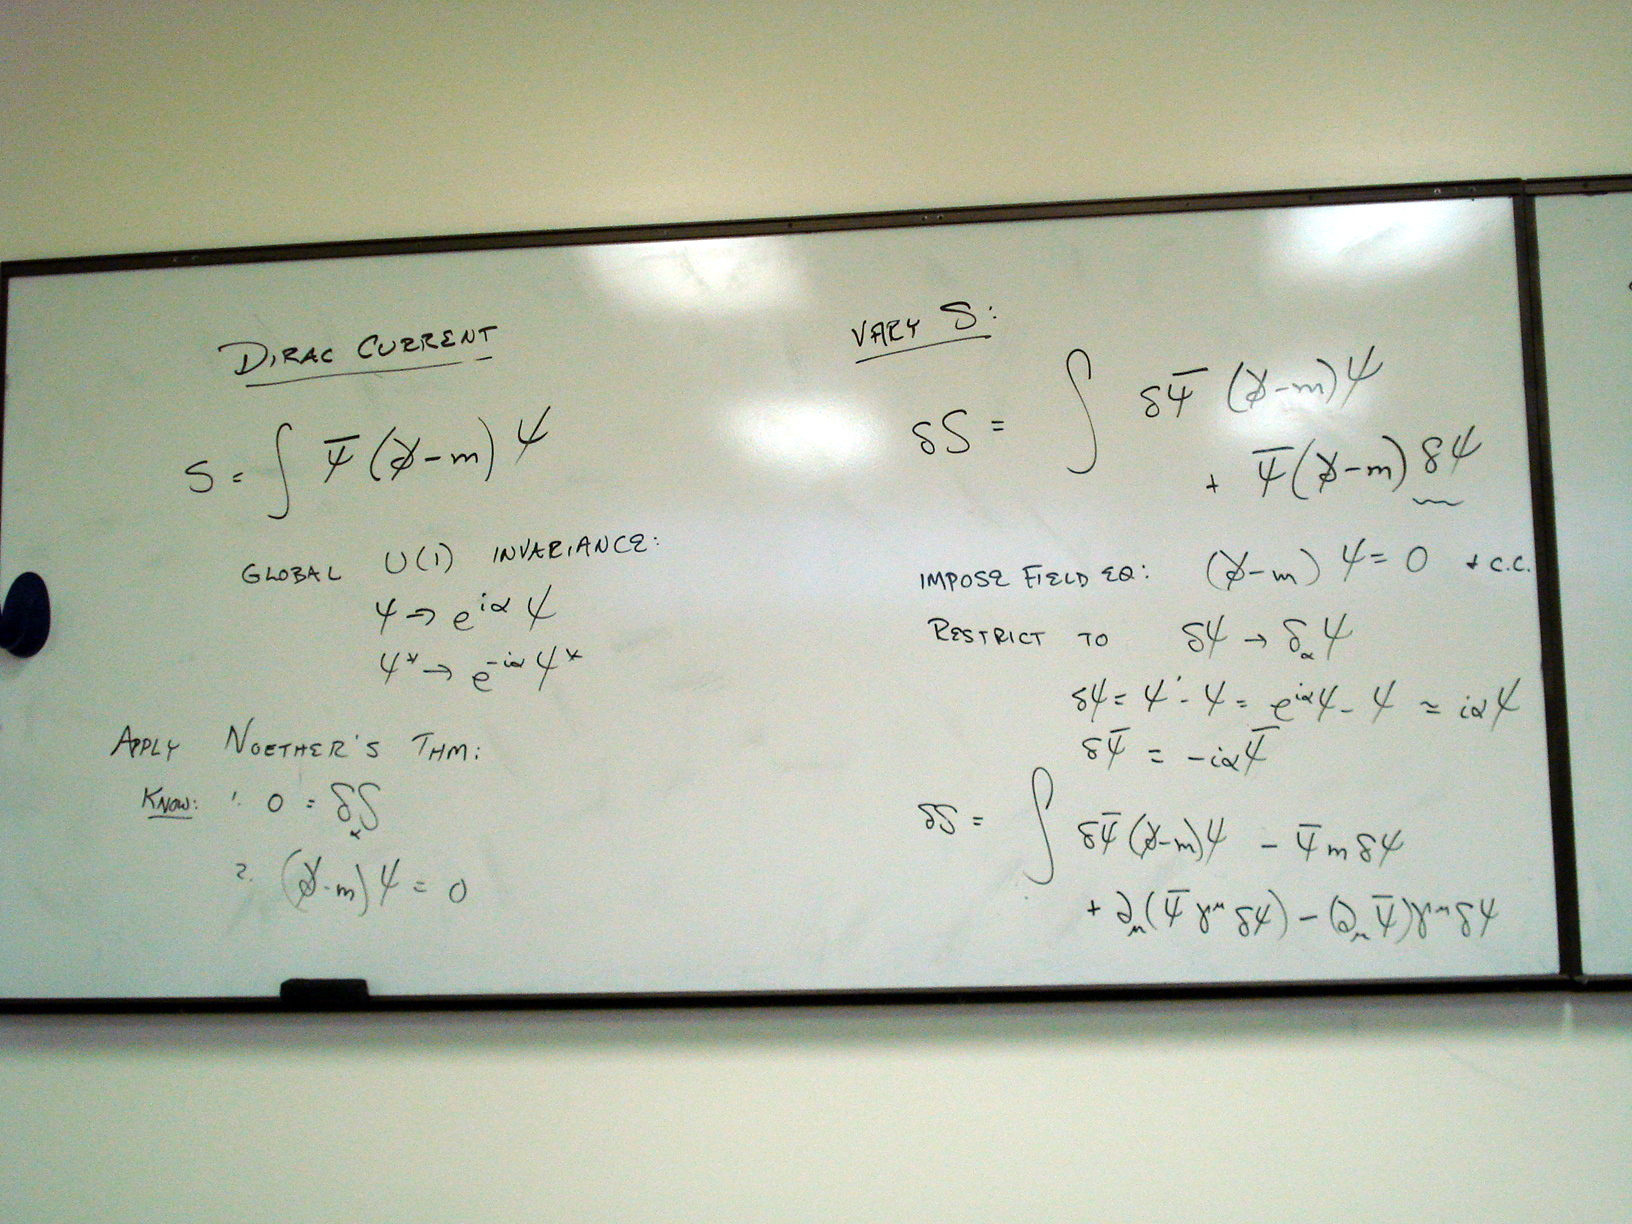 DIRAC CURRENT
S = ∫ Ψ̄ (∂̸ - m) Ψ
GLOBAL U(1) INVARIANCE:
Ψ → e^{iα} Ψ
Ψ* → e^{-iα} Ψ*
APPLY NOETHER'S THM:
KNOW: 1. 0 = δ_α S
2. (∂̸ - m) Ψ = 0
VARY S:
δS = ∫ δΨ̄ (∂̸ - m) Ψ
+ Ψ̄ (∂̸ - m) δΨ
IMPOSE FIELD EQ: (∂̸ - m) Ψ = 0 + c.c.
RESTRICT TO δΨ → δ_α Ψ
δΨ = Ψ' - Ψ = e^{iα} Ψ - Ψ ≈ iα Ψ
δΨ̄ = -iα Ψ̄
δS = ∫ δΨ̄ (∂̸ - m) Ψ - Ψ̄ m δΨ
+ ∂_μ (Ψ̄ γ^μ δΨ) - (∂_μ Ψ̄) γ^μ δΨ